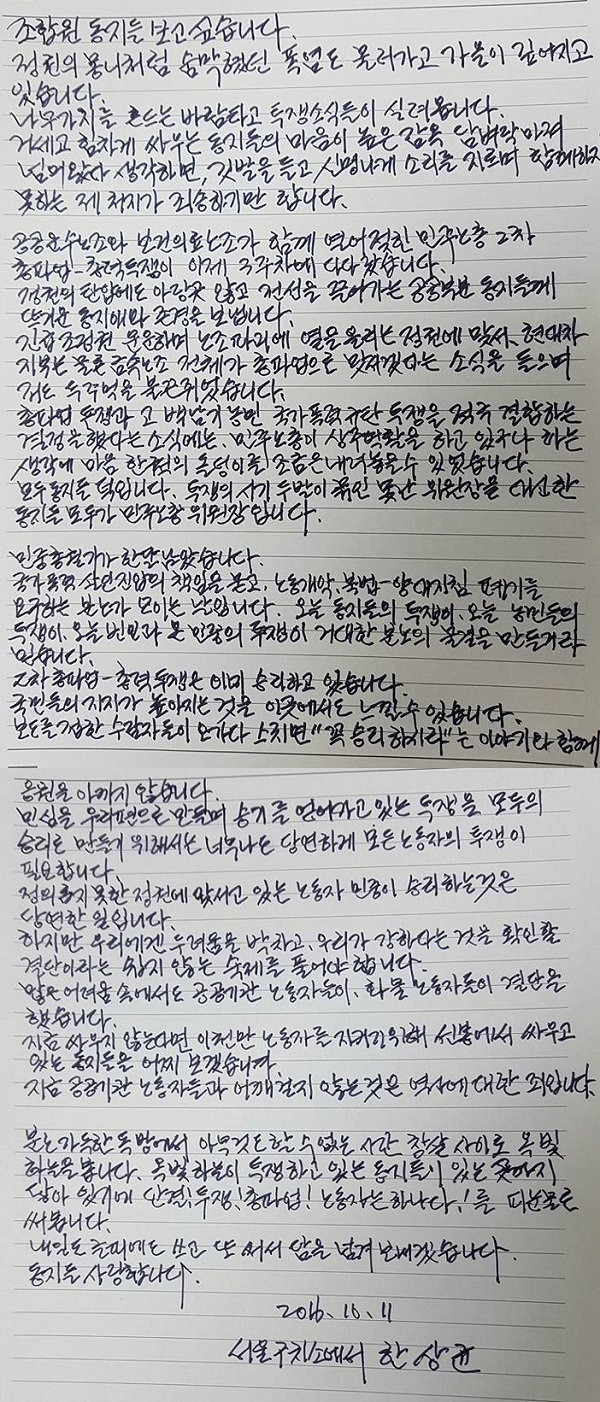 조합원 동지들 보고 싶습니다.
정권의 몽니처럼 숨막혔던 폭염도 물러가고 가을이 깊어지고
있습니다.
나뭇가지를 흔드는 바람타고 투쟁소식들이 실려옵니다.
거세고 힘차게 싸우는 동지들의 마음이 높은 감옥 담벼락마저
넘어왔다 생각하면, 깃발을 들고 신명나게 소리를 지르며 함께하지
못하는 제 처지가 죄송하기만 합니다.
공공운수노조와 보건의료노조가 함께 열어젖힌 민주노총 2차
총파업-총력투쟁이 이제 3주차에 다다랐습니다.
정권의 탄압에도 아랑곳 않고 전선을 끌어가는 공공부문 동지들께
뜨거운 동지애와 존경을 보냅니다.
긴급조정권 운운하며 노조파괴에 열을 올리는 정권에 맞서, 현대차
지부는 물론 금속노조 전체가 총파업으로 맞서겠다는 소식을 들으며
저도 두 주먹을 불끈 쥐었습니다.
총파업 투쟁과 고 백남기 농민 국가폭력 규탄 투쟁을 적극 결합하는
결정을 했다는 소식에는, 민주노총이 상주역할을 하고 있구나 하는
생각에 마음 한켠의 돌덩이를 조금은 내려놓을 수 있었습니다.
모두 동지들 덕입니다. 투쟁의 시기 두발이 묶인 못난 위원장을 대신한
동지들 모두가 민주노총 위원장입니다.
민중총궐기가 한달 남았습니다.
국가폭력 살인진압의 책임을 묻고, 노동개악, 불법-양대지침 폐기를
요구하는 분노가 모이는 날입니다. 오늘 동지들의 투쟁이, 오늘 농민들의
투쟁이, 오늘 빈민과 온 민중의 투쟁이 거대한 분노의 물결을 만들거라
믿습니다.
2차 총파업-총력투쟁은 이미 승리하고 있습니다.
국민들의 지지가 높아지는 것을 이곳에서도 느낄 수 있습니다.
보도를 접한 수감자들이 오가다 스치면 "꼭 승리하시라"는 이야기와 함께
응원을 아끼지 않습니다.
민심을 우리편으로 만들며 승기를 얻어가고 있는 투쟁을 모두의
승리로 만들기 위해서는 너무나도 당연하게 모든 노동자의 투쟁이
필요합니다.
정의롭지 못한 정권에 맞서고 있는 노동자 민중이 승리하는 것은
당연한 일입니다.
하지만 우리에겐 두려움을 박차고, 우리가 강하다는 것을 확인할
결단이라는 쉽지 않은 숙제를 풀어야 합니다.
많은 어려움 속에서도 공공기관 노동자들이, 화물 노동자들이 결단을
했습니다.
지금 싸우지 않는다면 이천만 노동자를 지키기 위해 선봉에서 싸우고
있는 동지들을 어찌 보겠습니까.
지금 공공기관 노동자들과 어깨 걸지 않는 것은 역사에 대한 죄입니다.
분노 가득한 독방에서 아무것도 할 수 없는 시간 창살 사이로 옥빛
하늘을 봅니다. 옥빛 하늘이 투쟁하고 있는 동지들이 있는 곳까지
닿아 있기에 단결! 투쟁! 총파업! 노동자는 하나다! 를 피눈물로
써봅니다.
내일도 글피에도 쓰고 또 써서 담을 넘겨 보내겠습니다.
동지들 사랑합니다.
2016. 10. 11
서울구치소에서 한상균